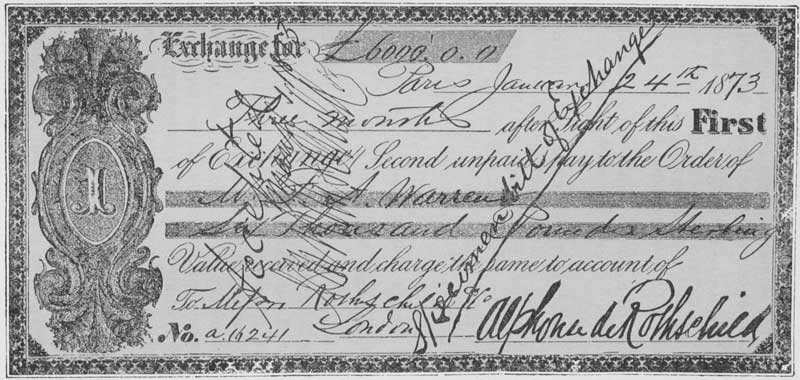 Exchange for £6000.0.0
Paris January 24th 1873
Three months after sight of this First
of Exchange Second unpaid Pay to the Order of
Warren
Six Thousand Pounds Sterling
Value received and charge the same to account of
To Messrs Rothschild
London
No. a.16241
Alphonse de Rothschild
1
Accepted
Specimen bill of Exchange